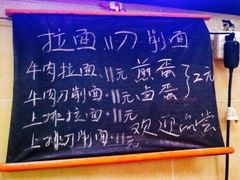 拉面 11 刀削面
牛肉拉面·11元 煎蛋
牛肉刀削面·11元 卤蛋 } 2元
上排拉面·11元
上排刀削面·11元 欢迎品尝